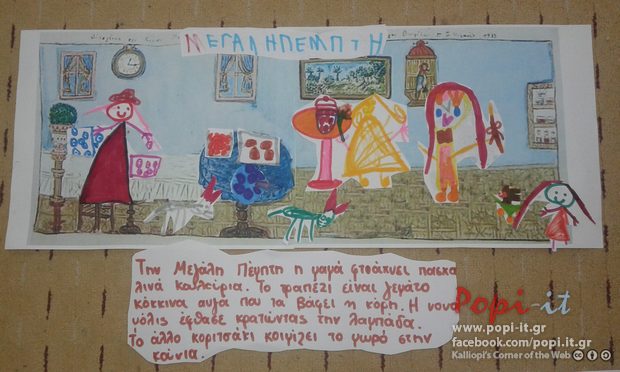 ΜΕΓΑΛΗ ΠΕΜΠΤΗ
Την Μεγάλη Πέμπτη η μαμά φτοάχνει πασχα
λινά κουλούρια. Το τραπέζι είναι γεμάτο
κόκκινα αυγά που τα βάφει η κόρη. Η νονα
μόλις έφθασε κρατώντας την λαμπάδα.
Το άλλο κοριτσάκι κοιμίζει το μωρό στην
κούνια.
Popi-it
www.popi-it.gr
facebook.com/popi.it.gr
Kalliopi's Corner of the Web